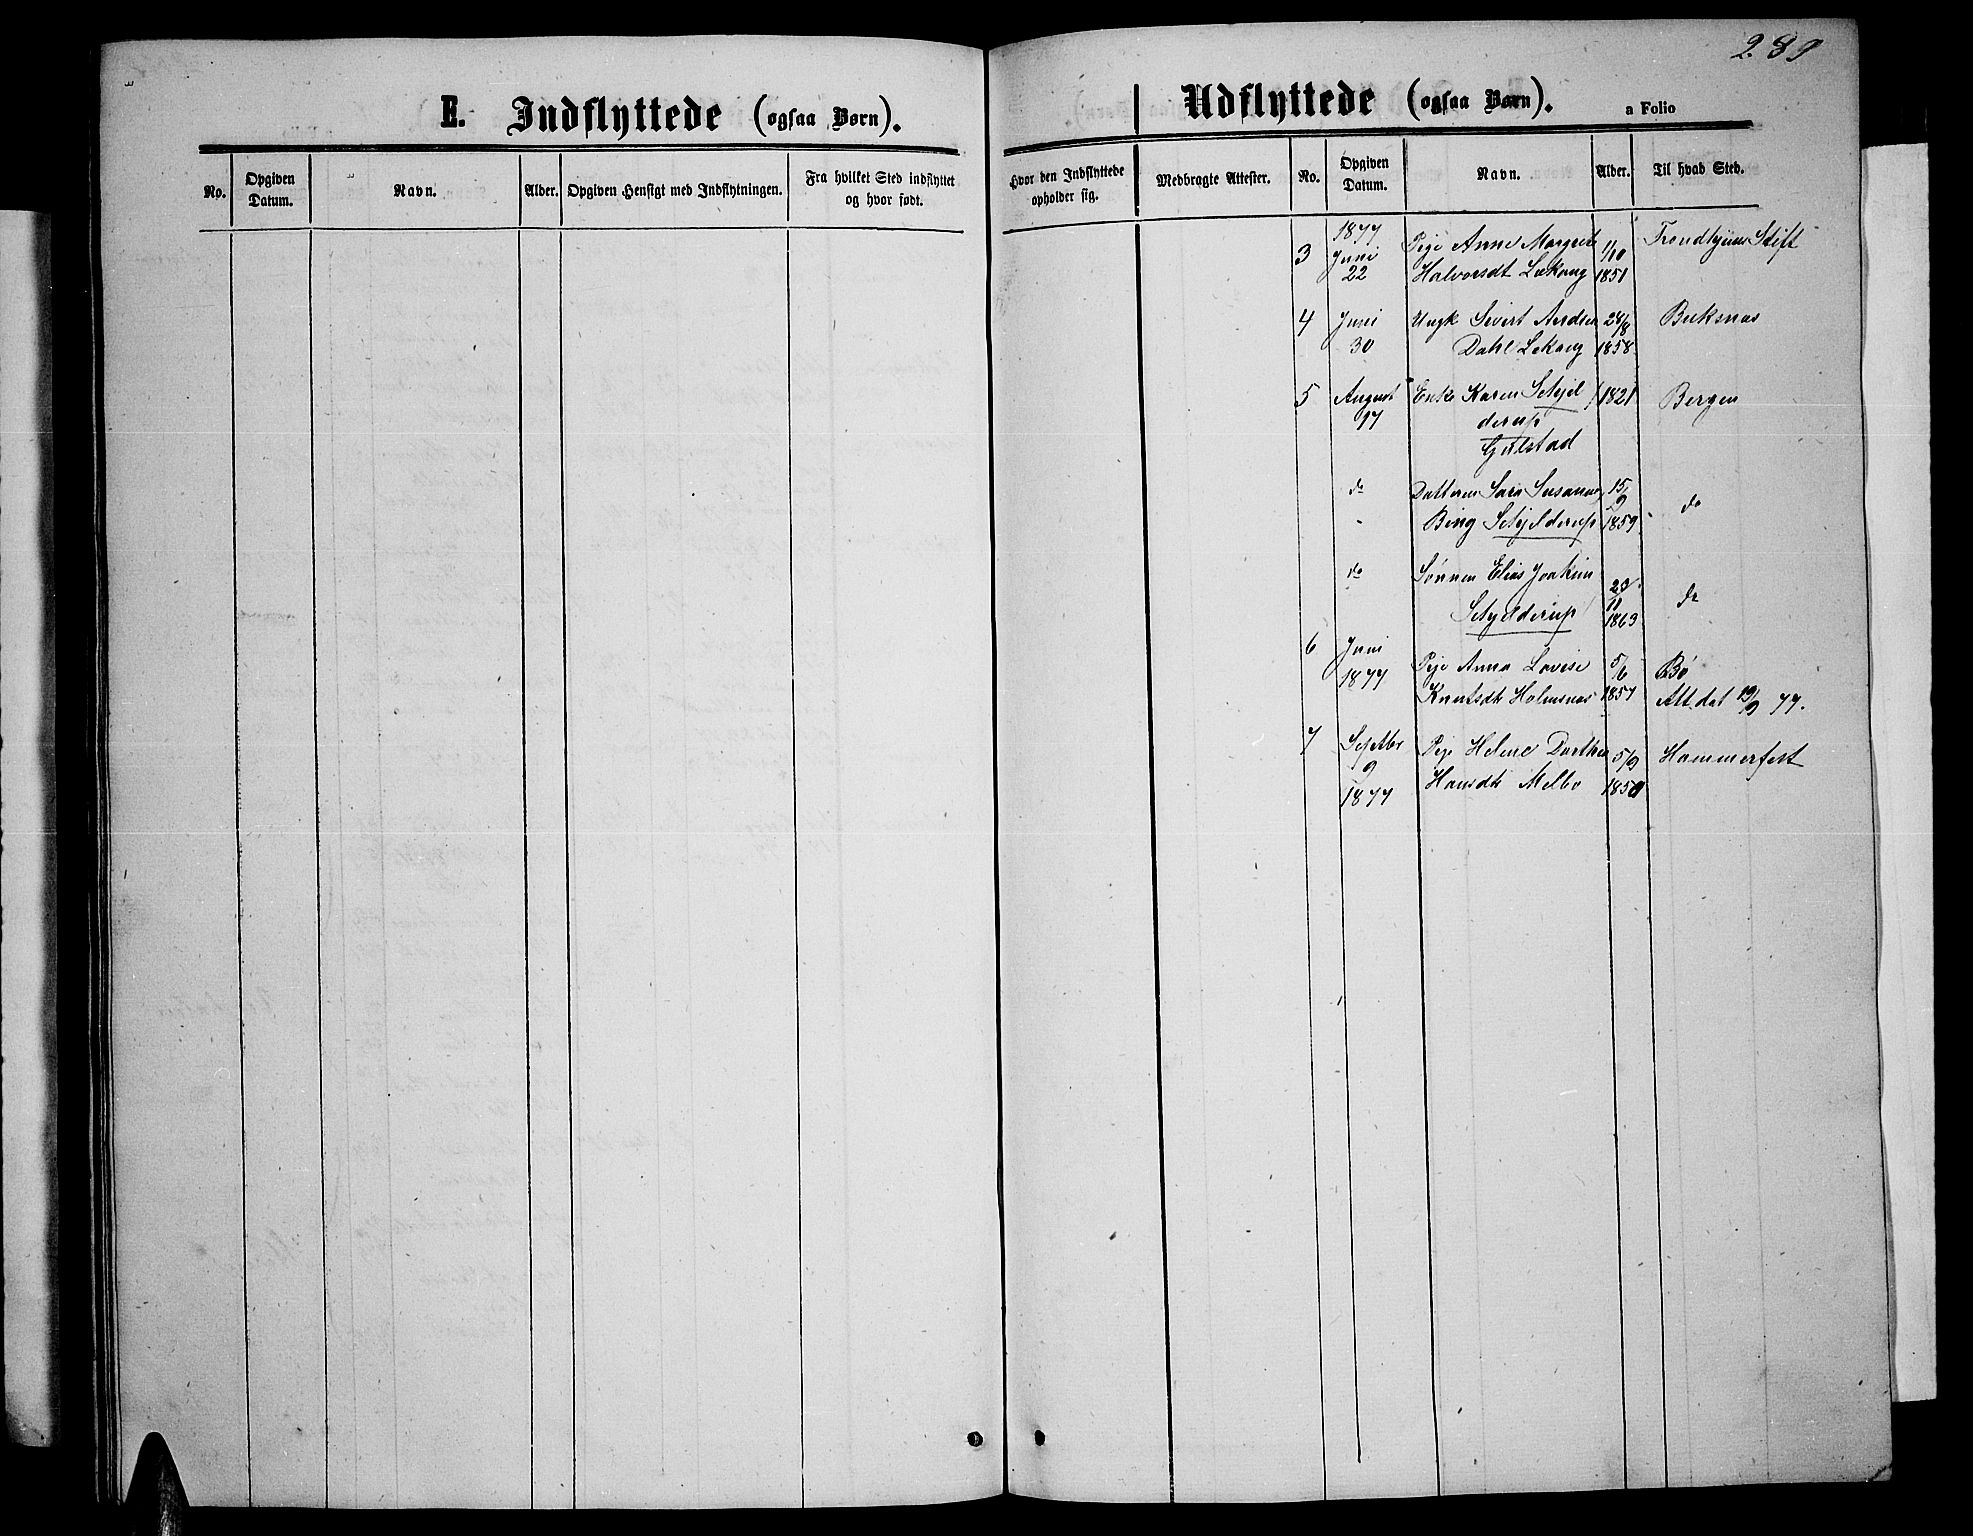 289
E. Indflyttede (ogsaa Børn).
Udflyttede (ogsaa Børn). a Folio
No. Opgiven Datum. Navn. Alder. Opgiven Hensigt med Indflytningen. Fra hvilket Sted indflyttet og hvor født.
Hvor den Indflyttede opholder sig. Medbragte Attester. No. Opgiven Datum. Navn. Alder. Til hvad Sted.
1877
3 Juni Pige Anne Margrete 1/10 Trondhjems Stift
22 Halvorsdt Lekang 1851
4 Juni Ungk Sivert Andsen 24/8 Buksnæs
30 Dahl Lekang 1858
5 August Enke Karen Schjel 1821 Bergen
97 derup
Gulstad
do Datteren Sara Susanna 15/9 do
Bing Schjelderup 1859
do Sønnen Elias Joakim 29/11 do
Schjelderup 1863
6 Juni Pige Anna Lovise 5/6 Bø
1877 Knutsdt Holmsnæs 1857 Att. dat 19/9 77.
7 Septbr Pige Helene Dorthea 5/9 Hammerfest
9 Hansdt Melbo 1850
1877